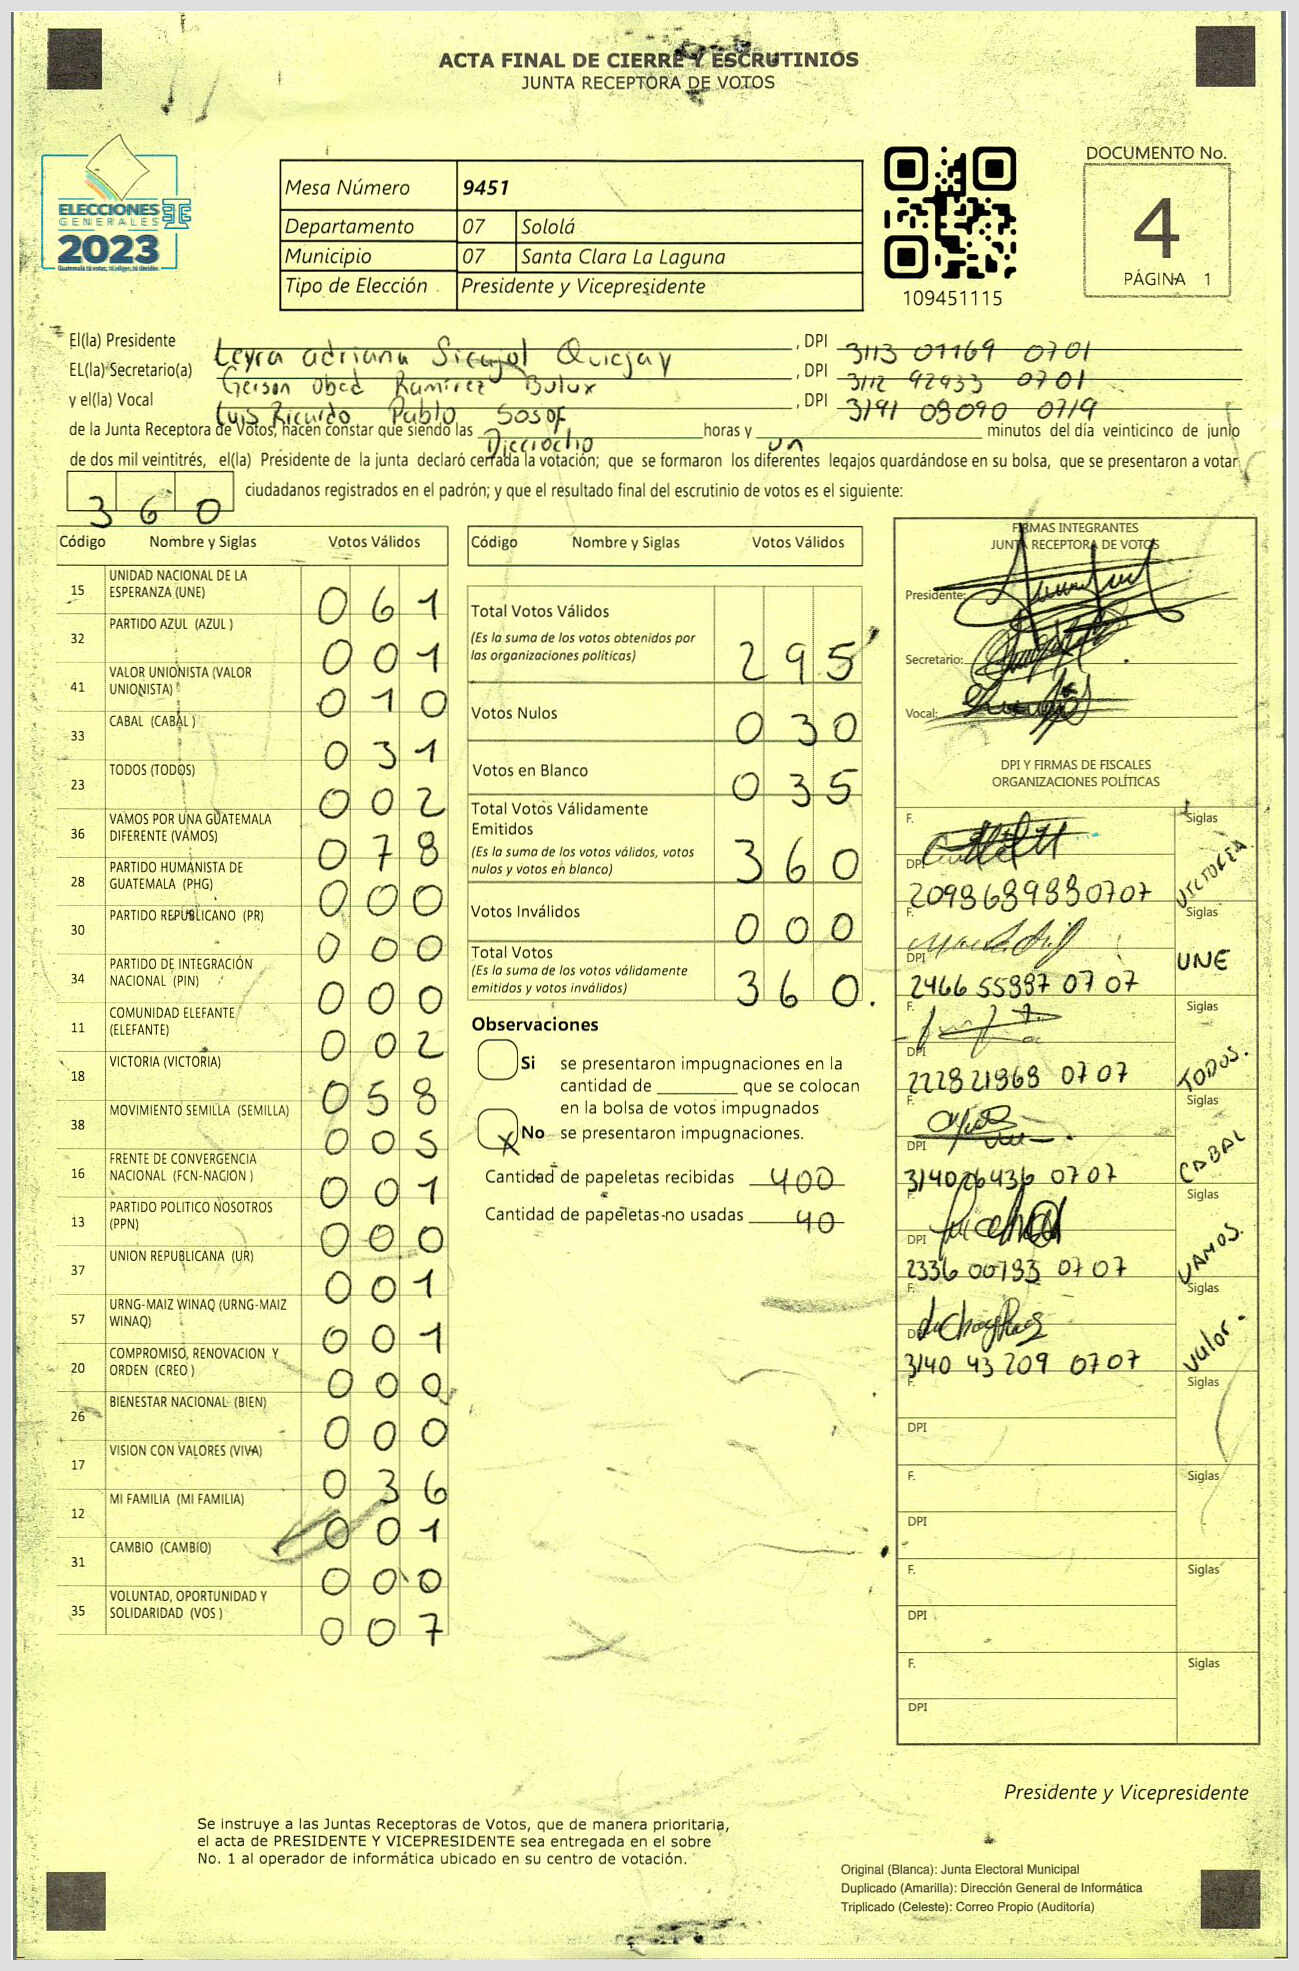 ACTA FINAL DE CIERRE Y ESCRUTINIOS
JUNTA RECEPTORA DE VOTOS
ELECCIONES
GENERALES
2023
Mesa Número 9451
Departamento 07 Sololá
Municipio 07 Santa Clara La Laguna
Tipo de Elección Presidente y Vicepresidente
109451115
DOCUMENTO No.
4
PÁGINA 1
El(la) Presidente Leyra adriana Sicajol Quiejay , DPI 3113 01169 0701
EL(la) Secretario(a) Gerson Obed Ramírez Bulux , DPI 3112 92933 0701
y el(la) Vocal Luis Ricardo Pablo Sosof , DPI 3191 08090 0719
de la Junta Receptora de Votos, hacen constar que siendo las Dieciocho horas y un minutos del día veinticinco de junio
de dos mil veintitrés, el(la) Presidente de la junta declaró cerrada la votación; que se formaron los diferentes legajos guardándose en su bolsa, que se presentaron a votar
360 ciudadanos registrados en el padrón; y que el resultado final del escrutinio de votos es el siguiente:
Código Nombre y Siglas Votos Válidos
15 UNIDAD NACIONAL DE LA ESPERANZA (UNE) 061
32 PARTIDO AZUL (AZUL ) 001
41 VALOR UNIONISTA (VALOR UNIONISTA) 010
33 CABAL (CABAL ) 031
23 TODOS (TODOS) 002
36 VAMOS POR UNA GUATEMALA DIFERENTE (VAMOS) 078
28 PARTIDO HUMANISTA DE GUATEMALA (PHG) 000
30 PARTIDO REPUBLICANO (PR) 000
34 PARTIDO DE INTEGRACIÓN NACIONAL (PIN) 000
11 COMUNIDAD ELEFANTE (ELEFANTE) 002
18 VICTORIA (VICTORIA) 058
38 MOVIMIENTO SEMILLA (SEMILLA) 005
16 FRENTE DE CONVERGENCIA NACIONAL (FCN-NACION ) 001
13 PARTIDO POLITICO NOSOTROS (PPN) 000
37 UNION REPUBLICANA (UR) 001
57 URNG-MAIZ WINAQ (URNG-MAIZ WINAQ) 001
20 COMPROMISO, RENOVACION Y ORDEN (CREO ) 000
26 BIENESTAR NACIONAL (BIEN) 000
17 VISION CON VALORES (VIVA) 036
12 MI FAMILIA (MI FAMILIA) 001
31 CAMBIO (CAMBIO) 000
35 VOLUNTAD, OPORTUNIDAD Y SOLIDARIDAD (VOS ) 007
Código Nombre y Siglas Votos Válidos
Total Votos Válidos 295
(Es la suma de los votos obtenidos por
las organizaciones políticas)
Votos Nulos 030
Votos en Blanco 035
Total Votos Válidamente
Emitidos 360
(Es la suma de los votos válidos, votos
nulos y votos en blanco)
Votos Inválidos 000
Total Votos 360.
(Es la suma de los votos válidamente
emitidos y votos inválidos)
Observaciones
Si se presentaron impugnaciones en la
cantidad de que se colocan
en la bolsa de votos impugnados
X No se presentaron impugnaciones.
Cantidad de papeletas recibidas 400
Cantidad de papeletas no usadas 40
FIRMAS INTEGRANTES
JUNTA RECEPTORA DE VOTOS
Presidente:
Secretario:
Vocal:
DPI Y FIRMAS DE FISCALES
ORGANIZACIONES POLÍTICAS
F. Siglas VICTORIA
DPI 2098689880707
F. Siglas UNE
DPI 2466 55997 0707
F. Siglas TODOS.
DPI 2228 21968 0707
F. Siglas CABAL
DPI 314026436 0707
F. Siglas VAMOS.
DPI 2336 00793 0707
F. Siglas Valor.
DPI 3140 43 209 0707
F. Siglas
DPI
F. Siglas
DPI
F. Siglas
DPI
F. Siglas
DPI
Presidente y Vicepresidente
Se instruye a las Juntas Receptoras de Votos, que de manera prioritaria,
el acta de PRESIDENTE Y VICEPRESIDENTE sea entregada en el sobre
No. 1 al operador de informática ubicado en su centro de votación.
Original (Blanca): Junta Electoral Municipal
Duplicado (Amarilla): Dirección General de Informática
Triplicado (Celeste): Correo Propio (Auditoría)